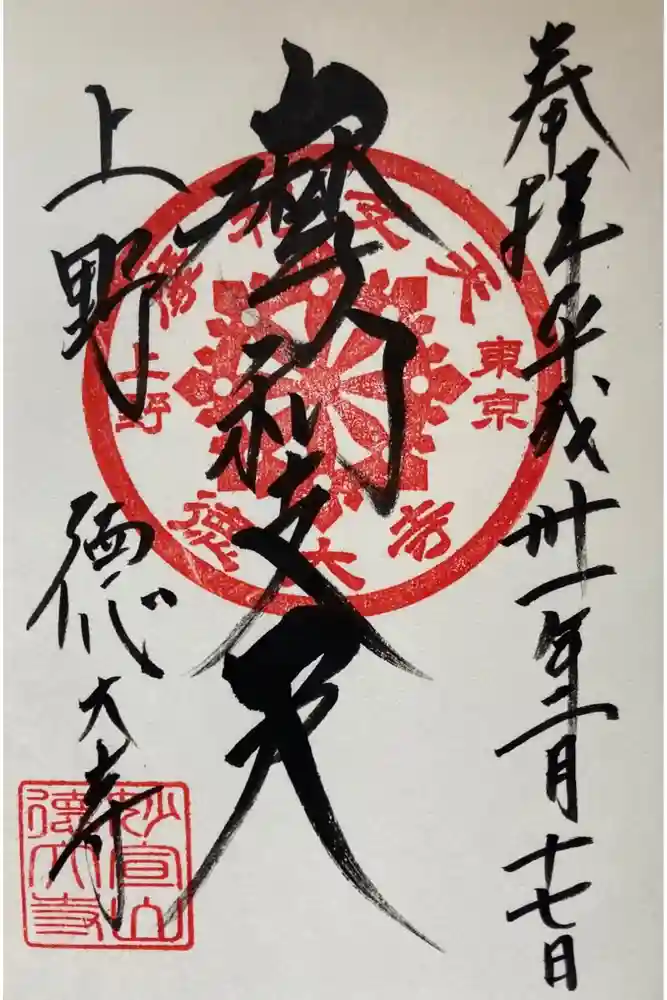 奉拝平成卅一年二月十七日
摩利支天
上野
徳大寺
摩利支天
東京
上野
徳大寺
妙宣山
徳大寺